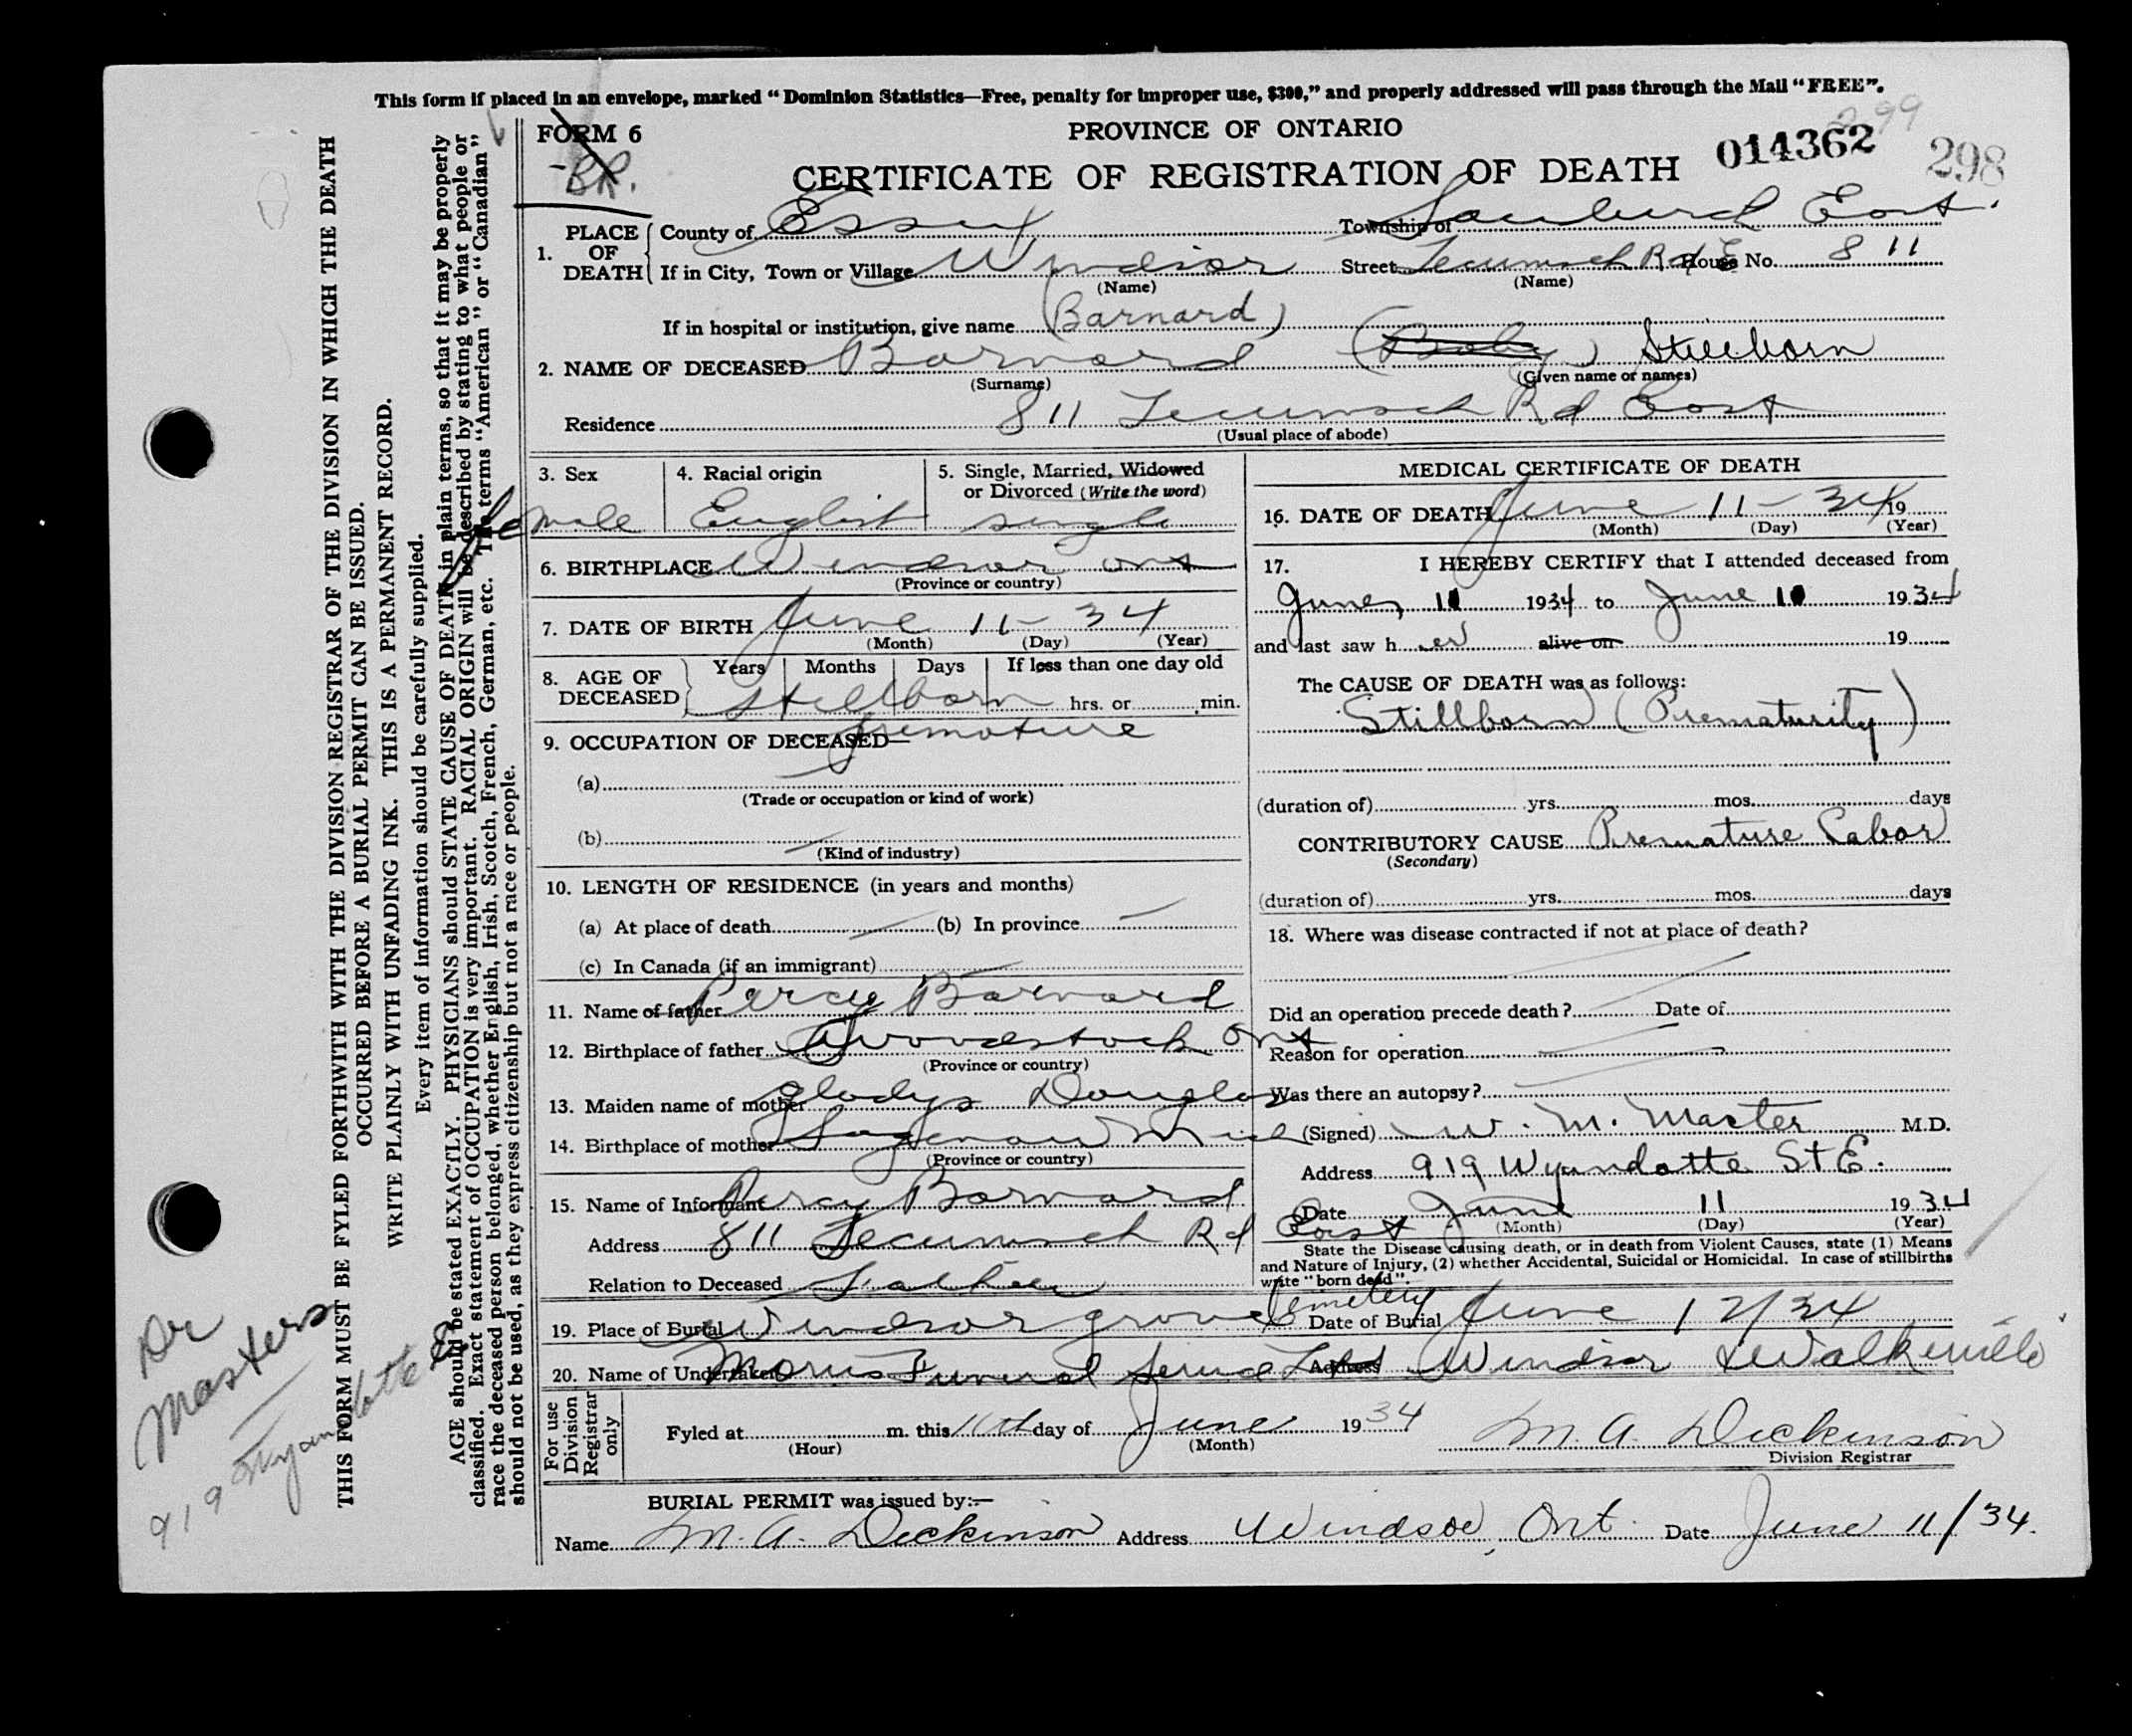 This form if placed in an envelope, marked "Dominion Statistics—Free, penalty for improper use, $300," and properly addressed will pass through the Mail "FREE".
FORM 6
BR.
PROVINCE OF ONTARIO
CERTIFICATE OF REGISTRATION OF DEATH
014362
299
298
1. PLACE OF DEATH County of Essex Township of Sandwich East
If in City, Town or Village Windsor Street Tecumseh Rd E House No. 811
(Name) (Name)
If in hospital or institution, give name (Barnard)
2. NAME OF DECEASED Barnard (Baby) Stillborn
(Surname) (Given name or names)
Residence 811 Tecumseh Rd East
(Usual place of abode)
3. Sex female
4. Racial origin English
5. Single, Married, Widowed or Divorced (Write the word) single
6. BIRTHPLACE Windsor Ont
(Province or country)
7. DATE OF BIRTH June 11 - 34
(Month) (Day) (Year)
8. AGE OF DECEASED Years Months Days If less than one day old
Stillborn hrs. or min.
premature
9. OCCUPATION OF DECEASED—
(a)
(Trade or occupation or kind of work)
(b)
(Kind of industry)
10. LENGTH OF RESIDENCE (in years and months)
(a) At place of death (b) In province
(c) In Canada (if an immigrant)
11. Name of father Percy Barnard
12. Birthplace of father Woodstock Ont
(Province or country)
13. Maiden name of mother Gladys Douglas
14. Birthplace of mother Sagenaw Mich
(Province or country)
15. Name of Informant Percy Barnard
Address 811 Tecumseh Rd East
Relation to Deceased Father
MEDICAL CERTIFICATE OF DEATH
16. DATE OF DEATH June 11 - 34 19
(Month) (Day) (Year)
17. I HEREBY CERTIFY that I attended deceased from
June 11 1934 to June 11 1934
and last saw her alive on 19
The CAUSE OF DEATH was as follows:
Stillborn (Prematurity)
(duration of) yrs. mos. days
CONTRIBUTORY CAUSE Premature Labor
(Secondary)
(duration of) yrs. mos. days
18. Where was disease contracted if not at place of death?
Did an operation precede death? Date of
Reason for operation
Was there an autopsy?
(Signed) W. M. Master M.D.
Address 919 Wyandotte St E.
Date June 11 1934
(Month) (Day) (Year)
State the Disease causing death, or in death from Violent Causes, state (1) Means
and Nature of Injury, (2) whether Accidental, Suicidal or Homicidal. In case of stillbirths
write "born dead".
19. Place of Burial Windsor grove Cemetery Date of Burial June 12/34
20. Name of Undertaker Morris Funeral Service Ltd Address Windsor & Walkerville
For use Division Registrar only
Fyled at m. this 11th day of June 1934 M. A. Dickinson
(Hour) (Month) Division Registrar
BURIAL PERMIT was issued by:—
Name M. A. Dickinson Address Windsor, Ont. Date June 11/34.
THIS FORM MUST BE FYLED FORTHWITH WITH THE DIVISION REGISTRAR OF THE DIVISION IN WHICH THE DEATH
OCCURRED BEFORE A BURIAL PERMIT CAN BE ISSUED.
WRITE PLAINLY WITH UNFADING INK. THIS IS A PERMANENT RECORD.
Every item of information should be carefully supplied.
AGE should be stated EXACTLY. PHYSICIANS should STATE CAUSE OF DEATH in plain terms, so that it may be properly
classified. Exact statement of OCCUPATION is very important. RACIAL ORIGIN will be described by stating to what people or
race the deceased person belonged, whether English, Irish, Scotch, French, German, etc. The terms "American" or "Canadian"
should not be used, as they express citizenship but not a race or people.
Dr Masters
919 Wyandotte E